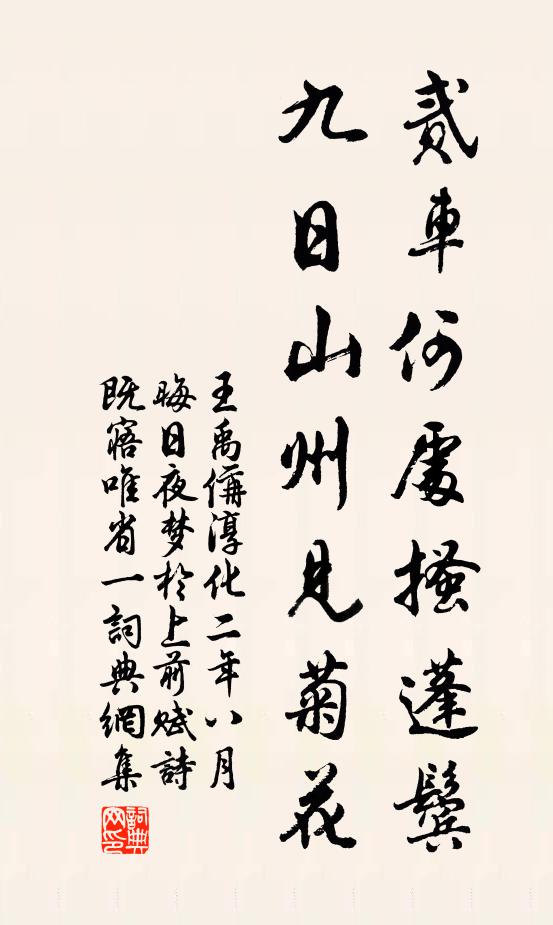 貳車何處搔蓬鬢
九日山州見菊花
王禹偁淳化二年八月
晦日夜梦於上前赋詩
既寤唯省一詞典網集
詞典
网印